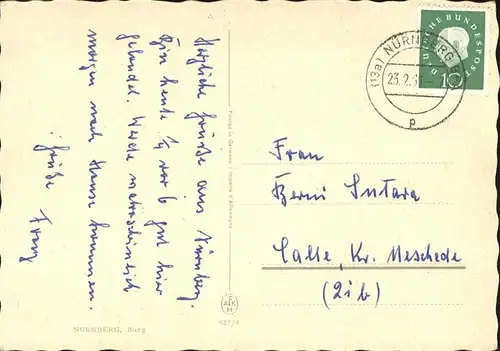 Herzliche Grüße aus Nürnberg.
Bin heute ¼ vor 6 gut hier
gelandet. Werde wahrscheinlich
morgen nach Hause kommen.
Grüße Franz
NÜRNBERG, Burg
Printed in Germany
427/4
DEUTSCHE BUNDESPOST
10
(13a) NÜRNBERG
23.2.6
p
Frau
Berni
Calle, Kr. Meschede
(21b)